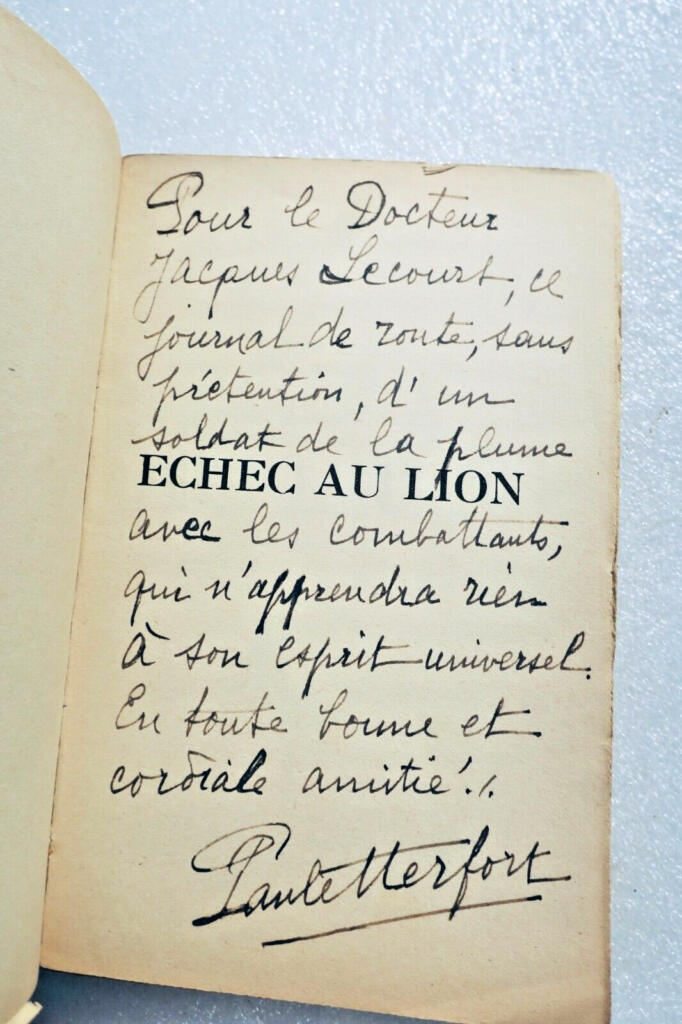 Pour le Docteur
Jacques Lecourt, ce
journal de route, sans
prétention, d'un
soldat de la plume
ECHEC AU LION
avec les combattants,
qui n'apprendra rien
à son esprit universel.
En toute bonne et
cordiale amitié.